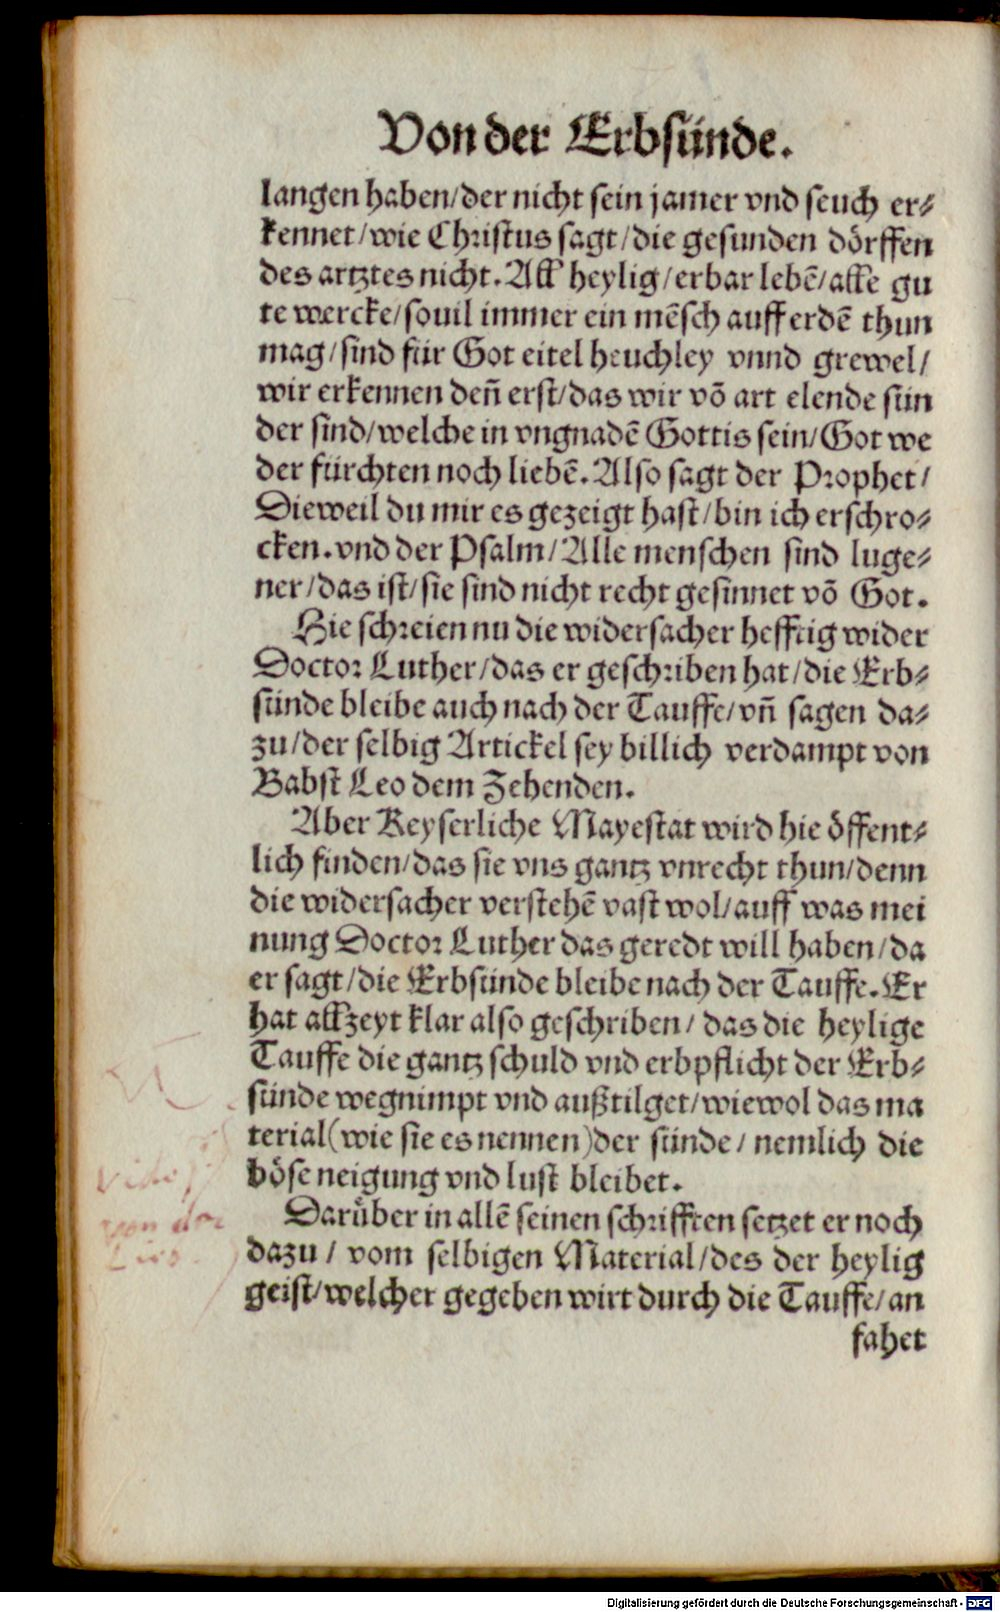 Von der Erbsünde.
langen haben/der nicht sein jamer vnd seuch er⸗
kennet/wie Christus sagt/die gesunden dörffen
des artztes nicht. All heylig/erbar lebẽ/alle gu
te wercke/souil immer ein mẽsch auff erdẽ thun
mag/sind für Got eitel heuchley vnnd grewel/
wir erkennen deñ erst/das wir võ art elende sün
der sind/welche in vngnadẽ Gottis sein/Got we
der fürchten noch liebẽ. Also sagt der Prophet/
Dieweil du mir es gezeigt hast/bin ich erschro⸗
cken. vnd der Psalm/Alle menschen sind luge⸗
ner/das ist/sie sind nicht recht gesinnet võ Got.
Hie schreien nu die widersacher hefftig wider
Doctor Luther/das er geschriben hat/die Erb⸗
sünde bleibe auch nach der Tauffe/vñ sagen da⸗
zu/der selbig Artickel sey billich verdampt von
Babst Leo dem Zehenden.
Aber Keyserliche Mayestat wird hie öffent⸗
lich finden/das sie vns gantz vnrecht thun/denn
die widersacher verstehẽ vast wol/auff was mei
nung Doctor Luther das geredt will haben/da
er sagt/die Erbsünde bleibe nach der Tauffe. Er
hat allzeyt klar also geschriben/das die heylige
Tauffe die gantz schuld vnd erbpflicht der Erb⸗
sünde wegnimpt vnd außtilget/wiewol das ma
terial(wie sie es nennen)der sünde/nemlich die
böse neigung vnd lust bleibet.
Darüber in allẽ seinen schrifften setzet er noch
dazu/vom selbigen Material/des der heylig
geist/welcher gegeben wirt durch die Tauffe/an
fahet
Digitalisierung gefördert durch die Deutsche Forschungsgemeinschaft - DFG